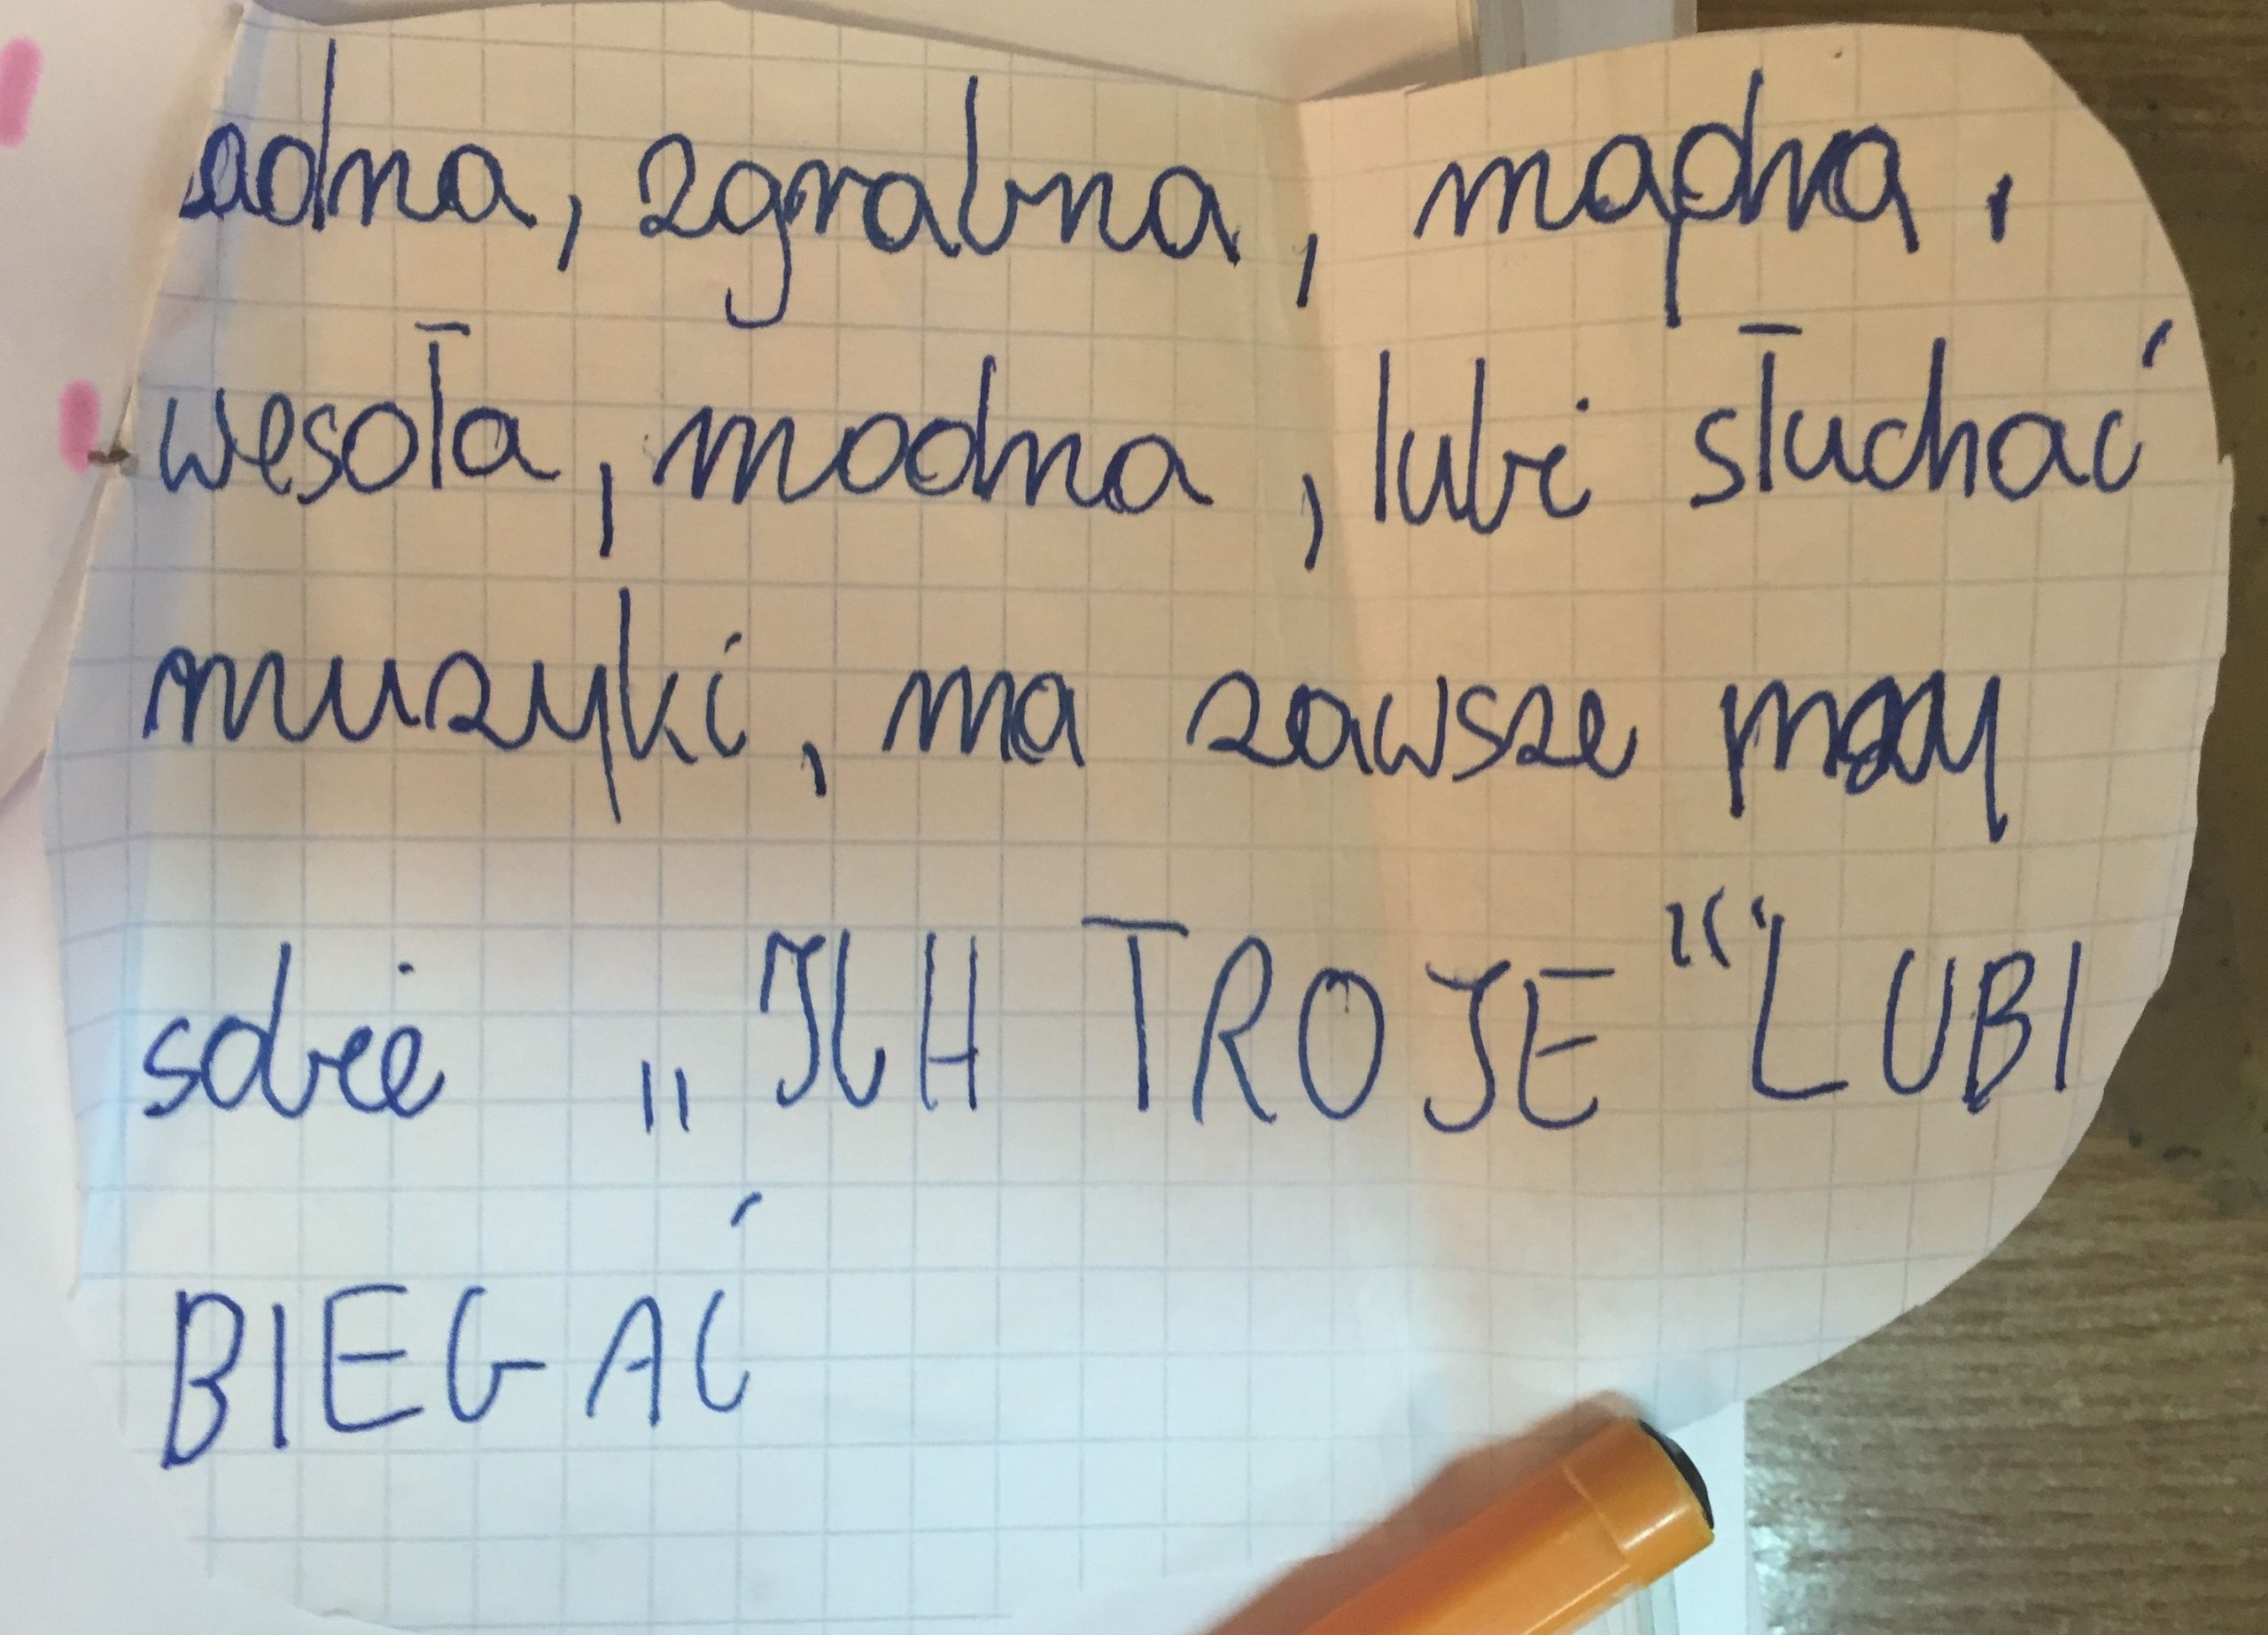 adna, zgrabna, mądra,
wesoła, modna, lubi słuchać
muzyki, ma zawsze przy
sobie „ICH TROJE“ LUBI
BIEGAĆ